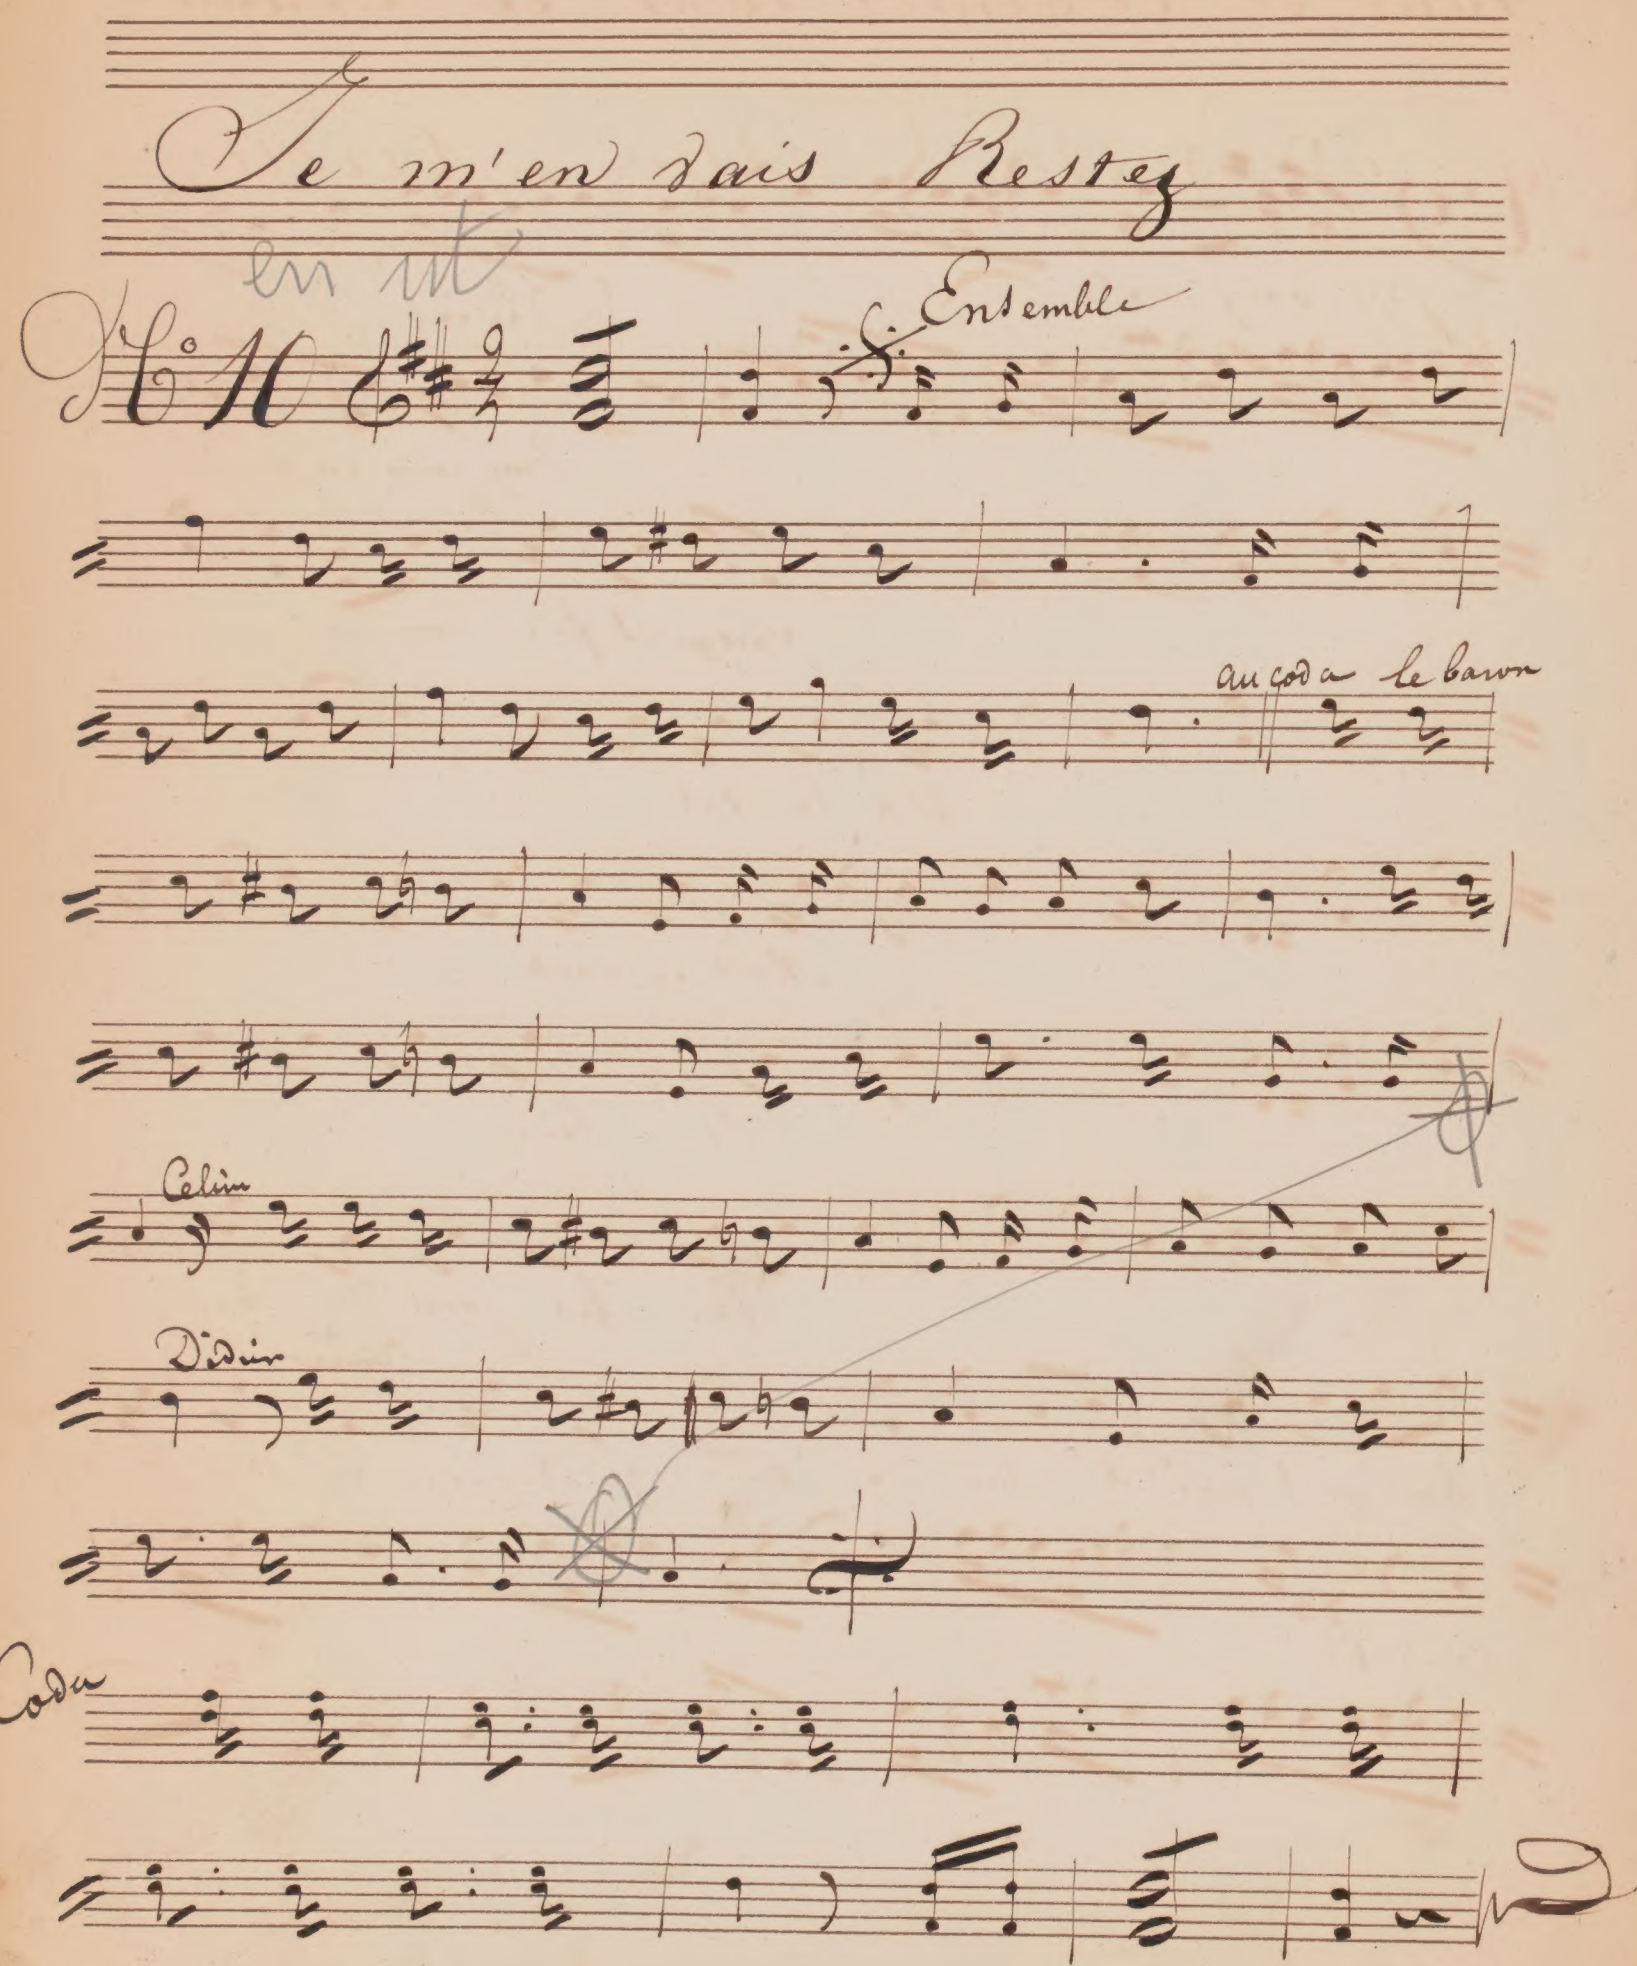 Je m'en vais Restez
en ut
Nº 10 Ensemble
au coda le baron
Celim
Didier
Coda